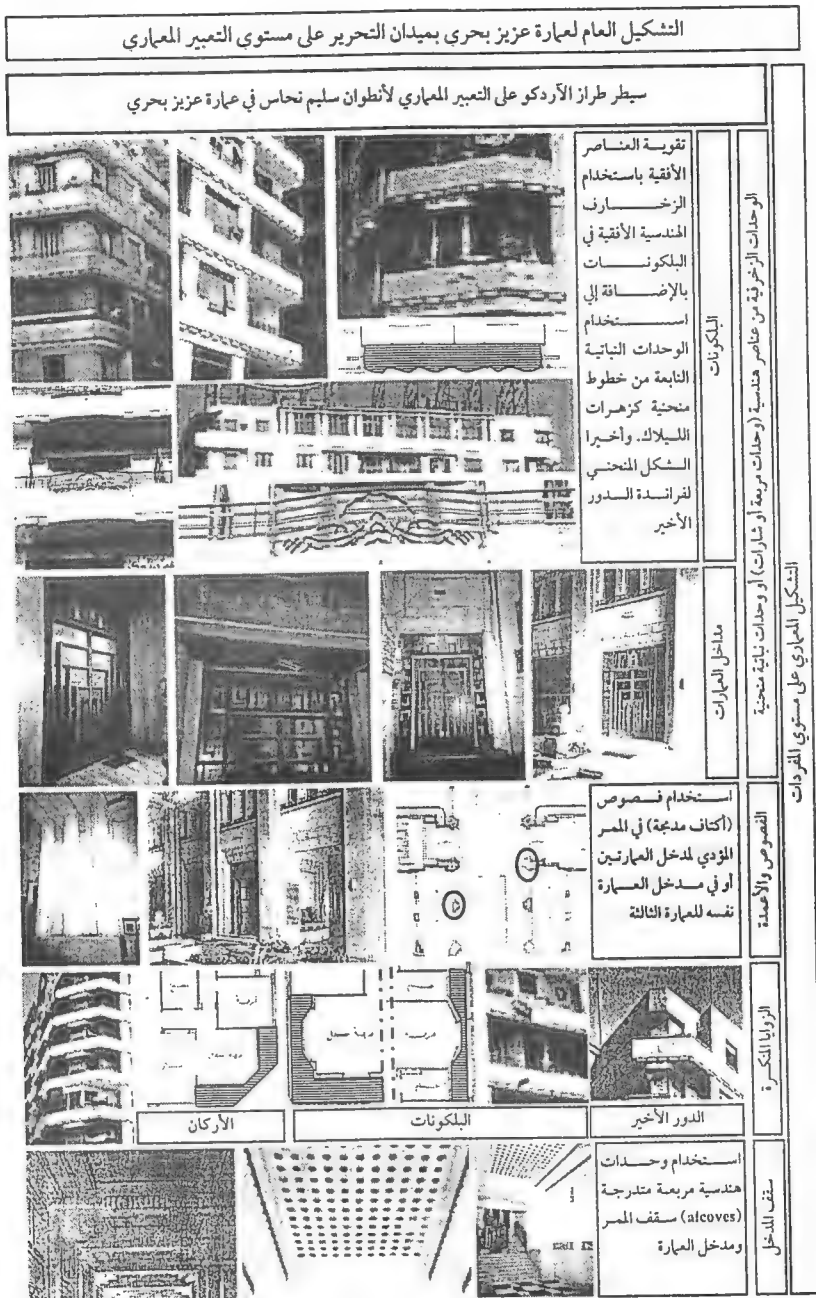 التشكيل العام لعمارة عزيز بحري بميدان التحرير على مستوي التعبير المعماري
سيطر طراز الآردكو على التعبير المعماري لأنطوان سليم نحاس في عمارة عزيز بحري
التشكيل المعماري على مستوي المفردات
الوحدات الزخرفية من عناصر هندسية (وحدات مربعة أو شارات) أو وحدات نباتية منحنية
البلكونات
تقوية العناصر
الأفقية باستخدام
الزخارف
الهندسية الأفقية في
البلكونات
بالإضافة إلى
استخدام
الوحدات النباتية
النابعة من خطوط
منحنية كزهرات
الليلاك. وأخيرا
الشكل المنحني
لفراندة الدور
الأخير
مداخل العمارات
الفصوص والأعمدة
استخدام فصوص
(أكتاف مدمجة) في الممر
المؤدي لمدخل العمارتين
أو في مدخل العمارة
نفسه للعمارة الثالثة
الزوايا المنكسرة
الدور الأخير
البلكونات
الأركان
سقف المدخل
استخدام وحدات
هندسية مربعة متدرجة
(afcoves) سقف الممر
ومدخل العمارة